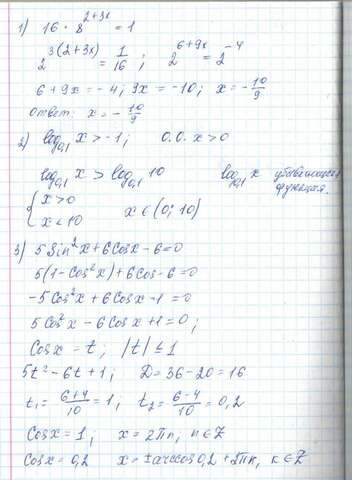 1) 16 · 8^(2+3x) = 1
2^(3(2+3x)) = 1/16 ; 2^(6+9x) = 2^(-4)
6 + 9x = -4 ; 9x = -10 ; x = -10/9
Ответ: x = -10/9
2) log_0,1 x > -1 ; О.О. x > 0
log_0,1 x > log_0,1 10 log_0,1 x убывающая
функция.
{ x > 0
x < 10 x ∈ (0; 10)
3) 5 Sin²x + 6 Cosx - 6 = 0
5(1 - Cos²x) + 6 Cos - 6 = 0
-5 Cos²x + 6 Cosx - 1 = 0
5 Cos²x - 6 Cosx + 1 = 0 ;
Cosx = t , |t| ≤ 1
5t² - 6t + 1 ; D = 36 - 20 = 16
t₁ = (6+4)/10 = 1 ; t₂ = (6-4)/10 = 0,2
Cosx = 1 ; x = 2πn, n ∈ Z
Cosx = 0,2 x = ± arccos 0,2 + 2πn, k ∈ Z